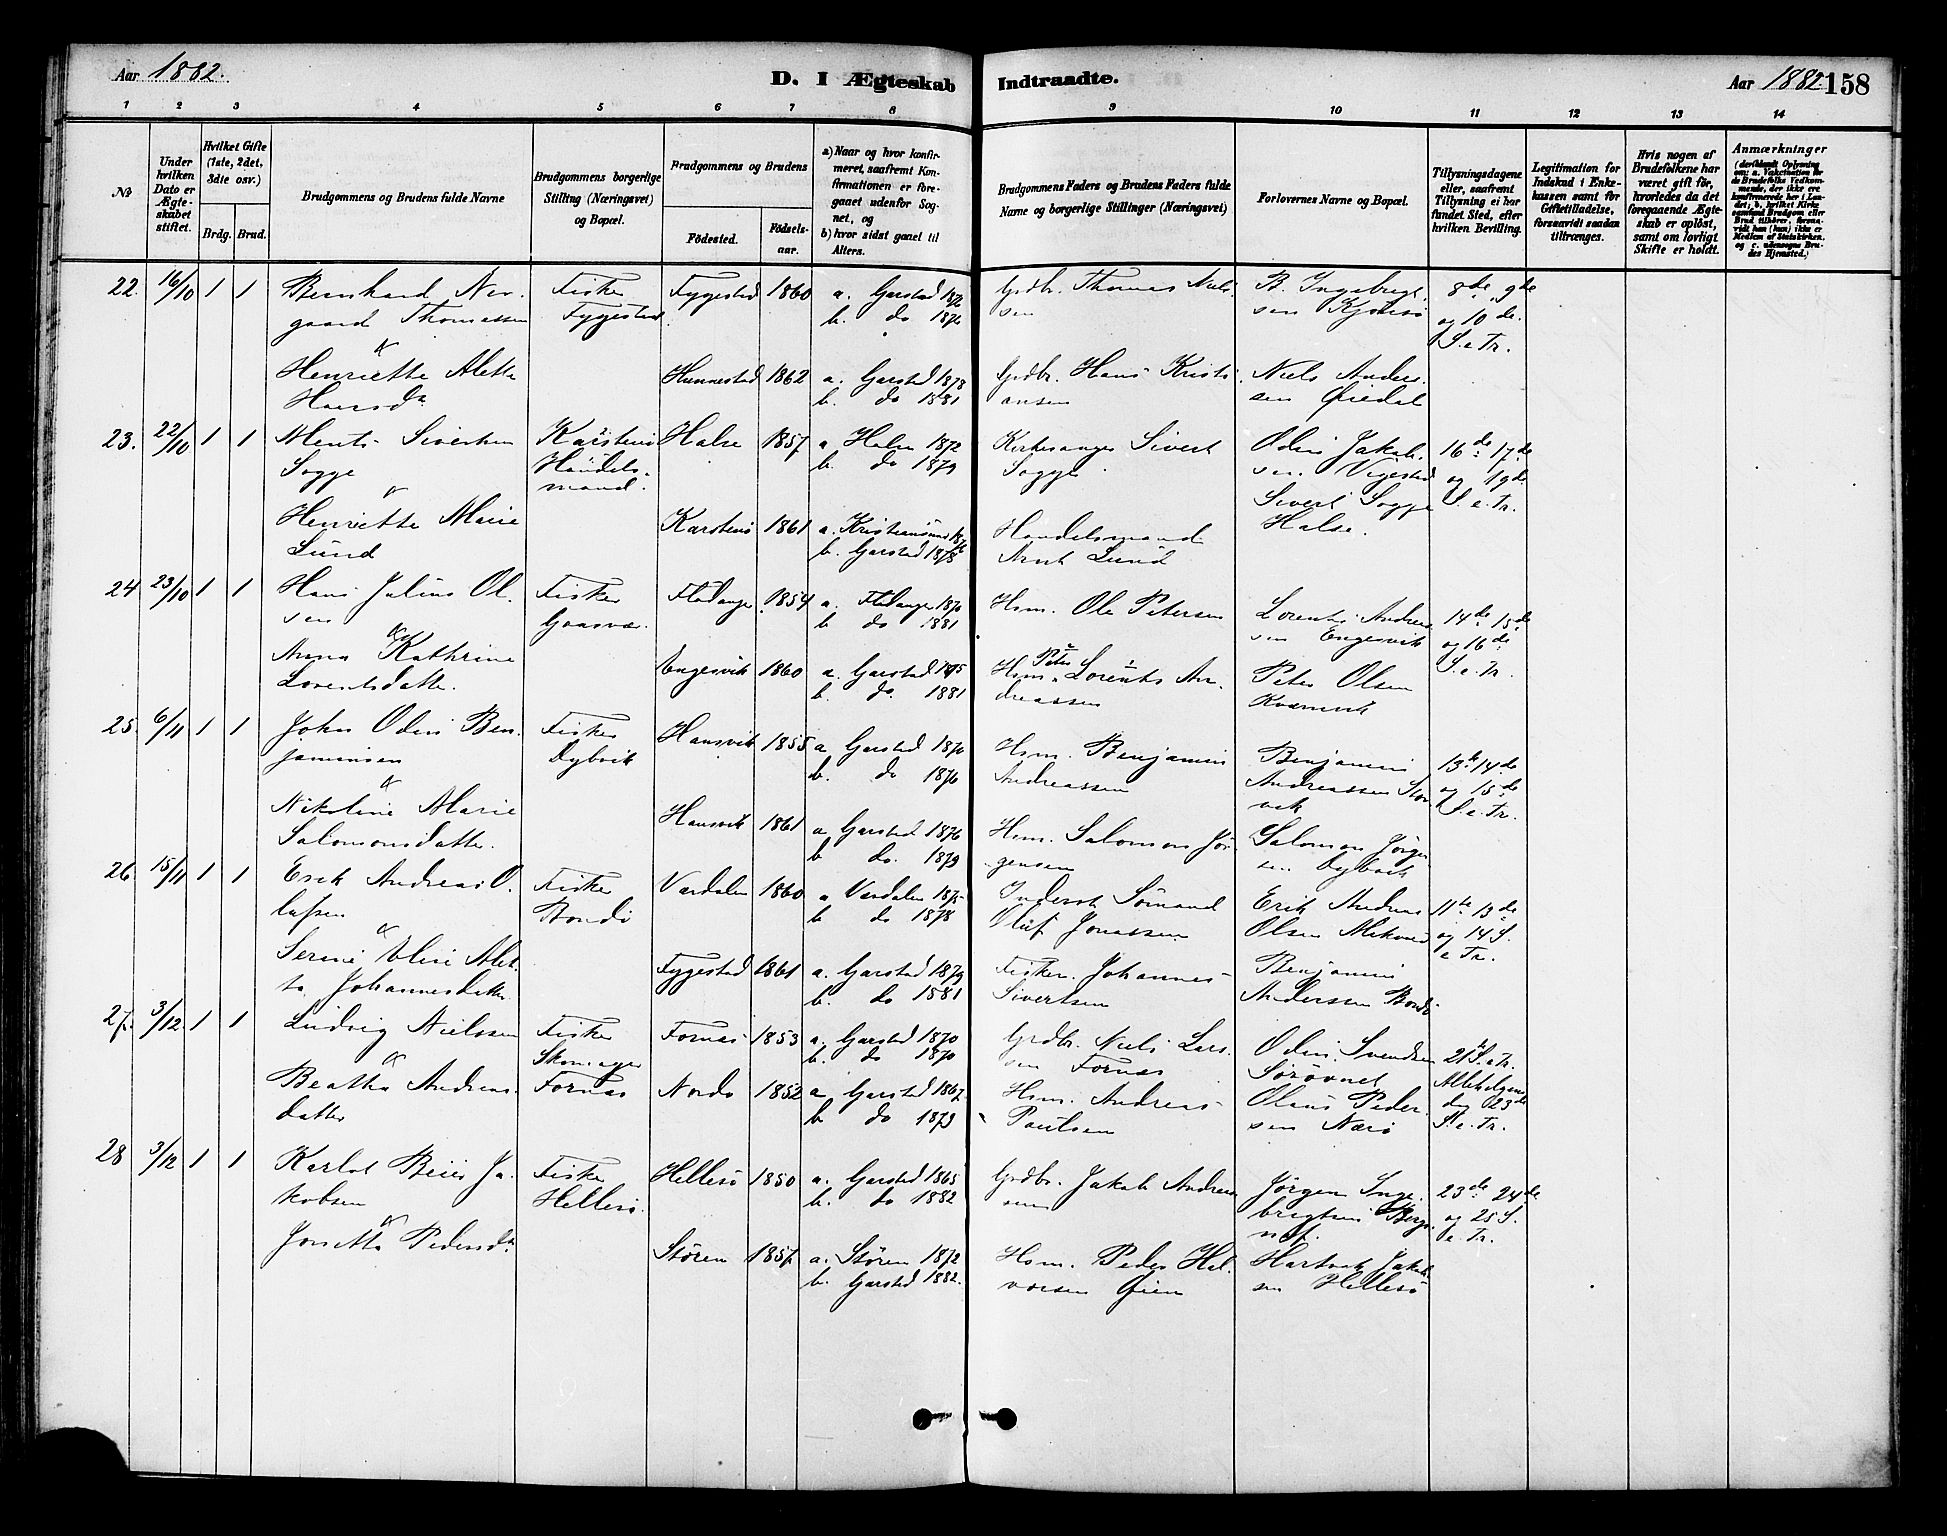 Aar 1882.
D. I Ægteskab Indtraadte.
Aar 1882 158
1 2 3 4 5 6 7 8 9 10 11 12 13 14
№
Under hvilken Dato er Ægteskabet stiftet.
Hvilket Gifte (1ste, 2det, 3dte osv.)
Brdg. Brud.
Brudgommens og Brudens fulde Navne
Brudgommens borgerlige Stilling (Næringsvei) og Bopæl.
Brudgommens og Brudens
Födested. Födselsaar.
a) Naar og hvor konfirmeret, saafremt Konfirmationen er foregaaet udenfor Sognet, og
b) hvor sidst gaaet til Alters.
Brudgommens Faders og Brudens Faders fulde Navne og borgerlige Stillinger (Næringsvei)
Forlovernes Navne og Bopæl.
Tillysningsdagene eller, saafremt Tillysning ei har fundet Sted, efter hvilken Bevilling.
Legitimation for Indskud i Enkekassen samt for Giftetilladelse, forsaavidt saadan tiltrænges.
Hvis nogen af Brudefolkene har været gift för, hvorledes da det foregaaende Ægteskab er oplöst, samt om lovligt Skifte er holdt.
Anmærkninger
22. 16/10 1 1 Bernhard Nergaard Thomassen
Fisker Fygestad
Fygestad 1860
a. Garstad 1872
b. do 1876
Grdbr. Thomas Nielsen
B. Ingebrigtsen
8de 9de og 10de S. e. Tr.
&
Henriette Aletta Hansdr
Hunnestad 1862
a. Garstad 1878
b. do 1881
Grdbr. Hans Kristiansen
Niels Andersen
23. 22/10 1 1 Ments Sivertsen Sogge
Karstenö Handelsmand.
Halse 1857
a Halse 1872
b. do 1879
Kirkesanger Sivert Sogge
Odin Jakobsen Vigestad
Sivert Sogge Halse.
16de 17de og 19de S. e. Tr.
&
Henriette Marie Lund
Karstenö 1861
a. Kristiansund
b. Garstad 1878
Handelsmand Arnt Lund
24 23/10 1 1 Hans Julius Olsen
Fisker Gaasvær.
Fladanger 1854
a. Fladanger 1870
b do 1881
Hsm. Ole Petersen
Lorents Andreassen Engesvik
14de 15de og 16de S. e. Tr.
&
Anna Kathrine Lorentsdatter.
Engesvik 1860
a. Garstad 1875
b. do. 1881
Hsm. Peter Lorents Andreassen
Peter Olsen
25. 6/11 1 1 John Odin Benjaminsen
Fisker Dybvik
Hansvik 1855
a. Garstad 1870
b. do 1876
Hsm. Benjamin Andreassen
Benjamin Andreassen
13de 14de og 15de S. e. Tr.
&
Nikoline Marie Salomonsdatter.
Hansvik 1861
a Garstad 1876
b do. 1879
Hsm. Salomon Jörgensen
Salomon Jörgensen Dybvik
26. 15/11 1 1 Erik Andreas Olafsen
Fisker Bondö
Værdalen 1860
a Værdalen 1875
b do 1878
Inderst Sömand Oluf Jonassen
Erik Andreas Olsen
11te 13de og 14 S. e Tr.
&
Serine Eline Aletta Johannesdatter
Fygestad 1861
a. Garstad 1879
b. do 1881
Fisker Johannes Sivertsen
Benjamin Anderssen Bondö
27. 3/12 1 1 Ludvig Nielssen
Fisker Skomager Fornæs
Fornæs 1853
a. Garstad 1870
b. do 1870
Grdbr. Niels Larsen Fornæs
Odin Svendsen
21 S. e Tr. Allehelgensdag 23de S. e. Tr.
&
Beatha Andreasdatter
Nordö 1852
a. Garstad 1867.
b do 1879
Hsm. Andreas Paulsen
Olaus Pedersen Nærö
28 3/12 1 1 Karlot Beier Jakobsen
Fisker Hellesö.
Hellesö 1850
a. Garstad 1865
b. do 1882
Grdbr. Jakob Andreassen
Jörgen Ingebrigtsen
23de 24de og 25 S. e. Tr.
&
Jonetta Pedersdtr
Stören 1857.
a. Stören 1872
b. Garstad 1882.
Hsm. Peder Halvorsen Öien
Hartvik Jakobsen Hellesö